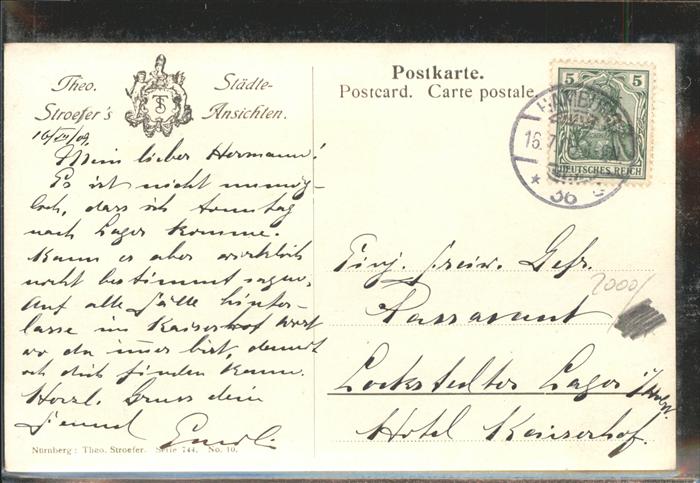 Theo. Stroefer's
Städte-Ansichten.
TS
Postkarte.
Postcard. Carte postale.
5 5
DEUTSCHES REICH
HAMBURG
36
Mein lieber Hermann!
Es ist nicht unmög-
lich, dass ich Sonntag
nach Lager komme.
Kann es aber wirklich
nicht bestimmt sagen.
Auf alle Fälle hinter-
lasse im Kaiserhof wort
wo du immer bist, damit
ich dich finden kann.
Herzl. Gruss dein
Freund
Einj. freiw. Gefr.
Passavant
Lockstedter Lager i/Holst.
Hotel Kaiserhof.
2000/
Nürnberg: Theo. Stroefer. Serie 744, No. 10.